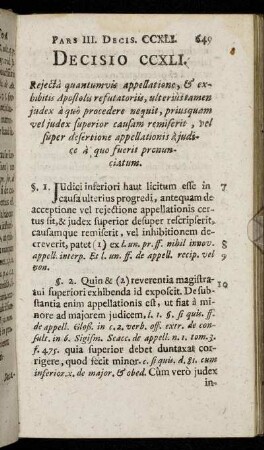 PARS III. DECIS. CCXLI. 649
DECISIO CCXLI.
Rejectâ quantumvis appellatione, & ex-
hibitis Apostolis refutatoriis, ulteriùs tamen
judex à quò procedere nequit, priusquam
vel judex superior causam remiserit, vel
super desertione appellationis à judi-
ce à quo fuerit pronun-
ciatum.
§. 1. Judici inferiori haut licitum esse in 7
causa ulterius progredi, antequam de
acceptione vel rejectione appellationis cer-
tus sit, & judex superior desuper rescripserit,
causamque remiserit, vel inhibitionem de-
creverit, patet (1) ex l. un. pr. ff. nihil innov. 8
appell. interp. Et l. un. ff. de appell. recip. vel 9
non.
§. 2. Quin & (2) reverentia magistra- 10
tui superiori exhibenda id exposcit. De sub-
stantia enim appellationis est, ut fiat à mi-
nore ad majorem judicem, l. 1. §. si quis. ff.
de appell. Gloß. in c. 2. verb. off. extr. de con-
sult. in 6. Sigism. Scacc. de appell. n. 1. tom. 3.
f. 475. quo superior debet duntaxat cor-
rigere, quod fecit minor. c. si quis. d. §1. cum
inferior. x. de major. & obed. Cùm verò judex
in-